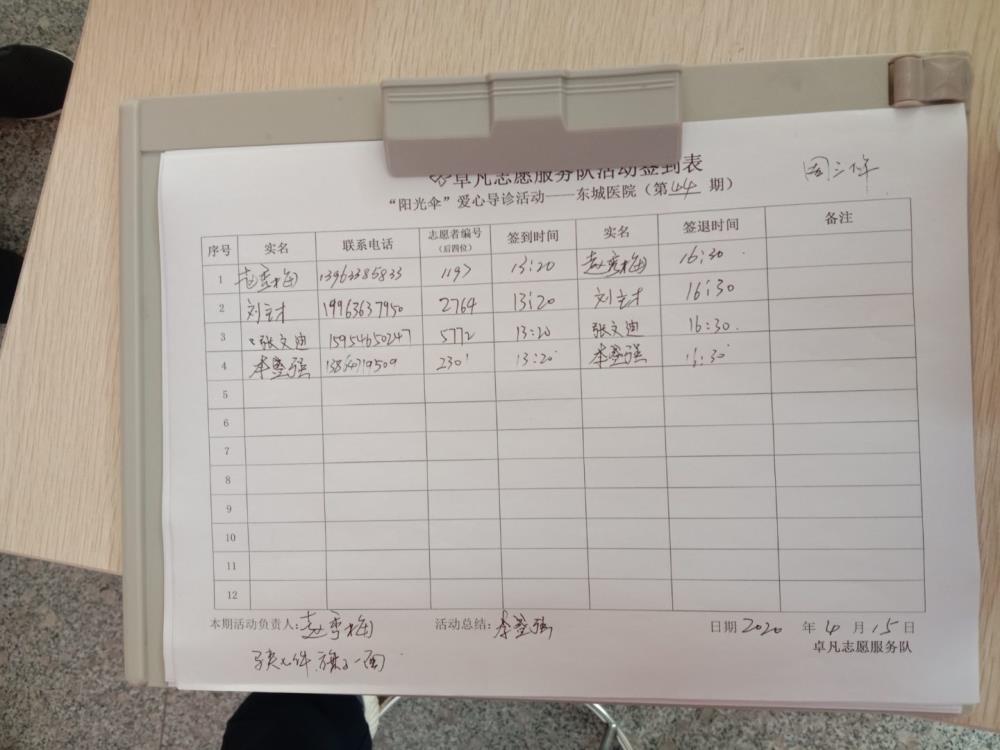 卓凡志愿服务队活动签到表
周三下午
“阳光伞”爱心导诊活动——东城医院（第44期）
序号 实名 联系电话 志愿者编号（后四位） 签到时间 实名 签退时间 备注
1 赵奕梅 13963385833 1197 13:20 赵奕梅 16:30
2 刘立才 19963637950 2764 13:20 刘立才 16:30
3 张文迪 15954650247 5772 13:20 张文迪 16:30
4 13:20 16:30
5
6
7
8
9
10
11
12
本期活动负责人：赵奕梅 活动总结：
日期 2020 年 4 月 15 日
卓凡志愿服务队